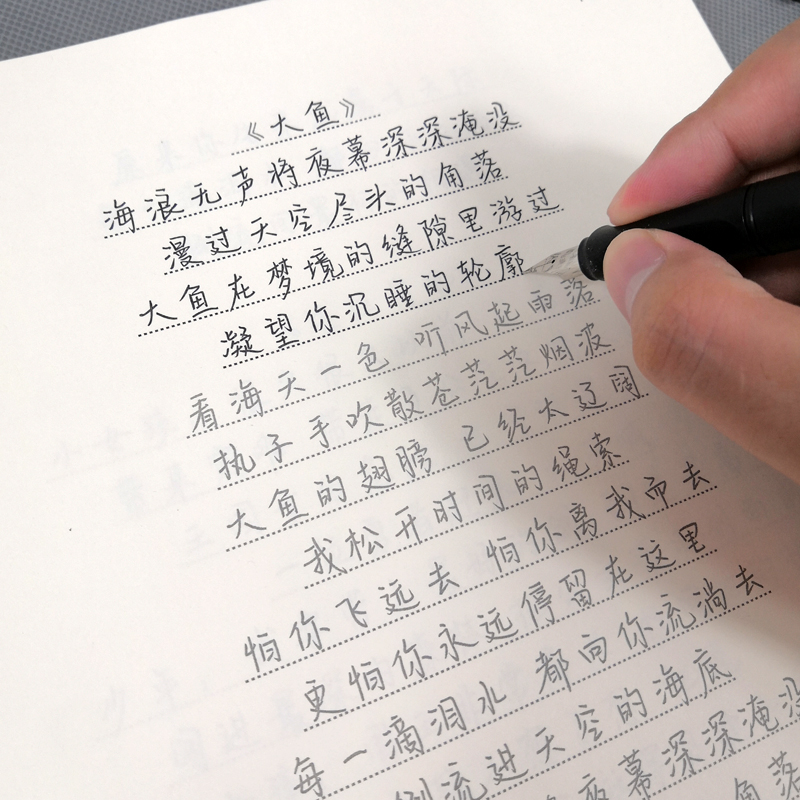 《大鱼》
海浪无声将夜幕深深淹没
漫过天空尽头的角落
大鱼在梦境的缝隙里游过
凝望你沉睡的轮廓
看海天一色 听风起雨落
执子手吹散苍茫茫烟波
大鱼的翅膀 已经太辽阔
我松开时间的绳索
怕你飞远去 怕你离我而去
更怕你永远停留在这里
每一滴泪水 都向你流淌去
倒流进天空的海底
夜幕深深淹没
角落